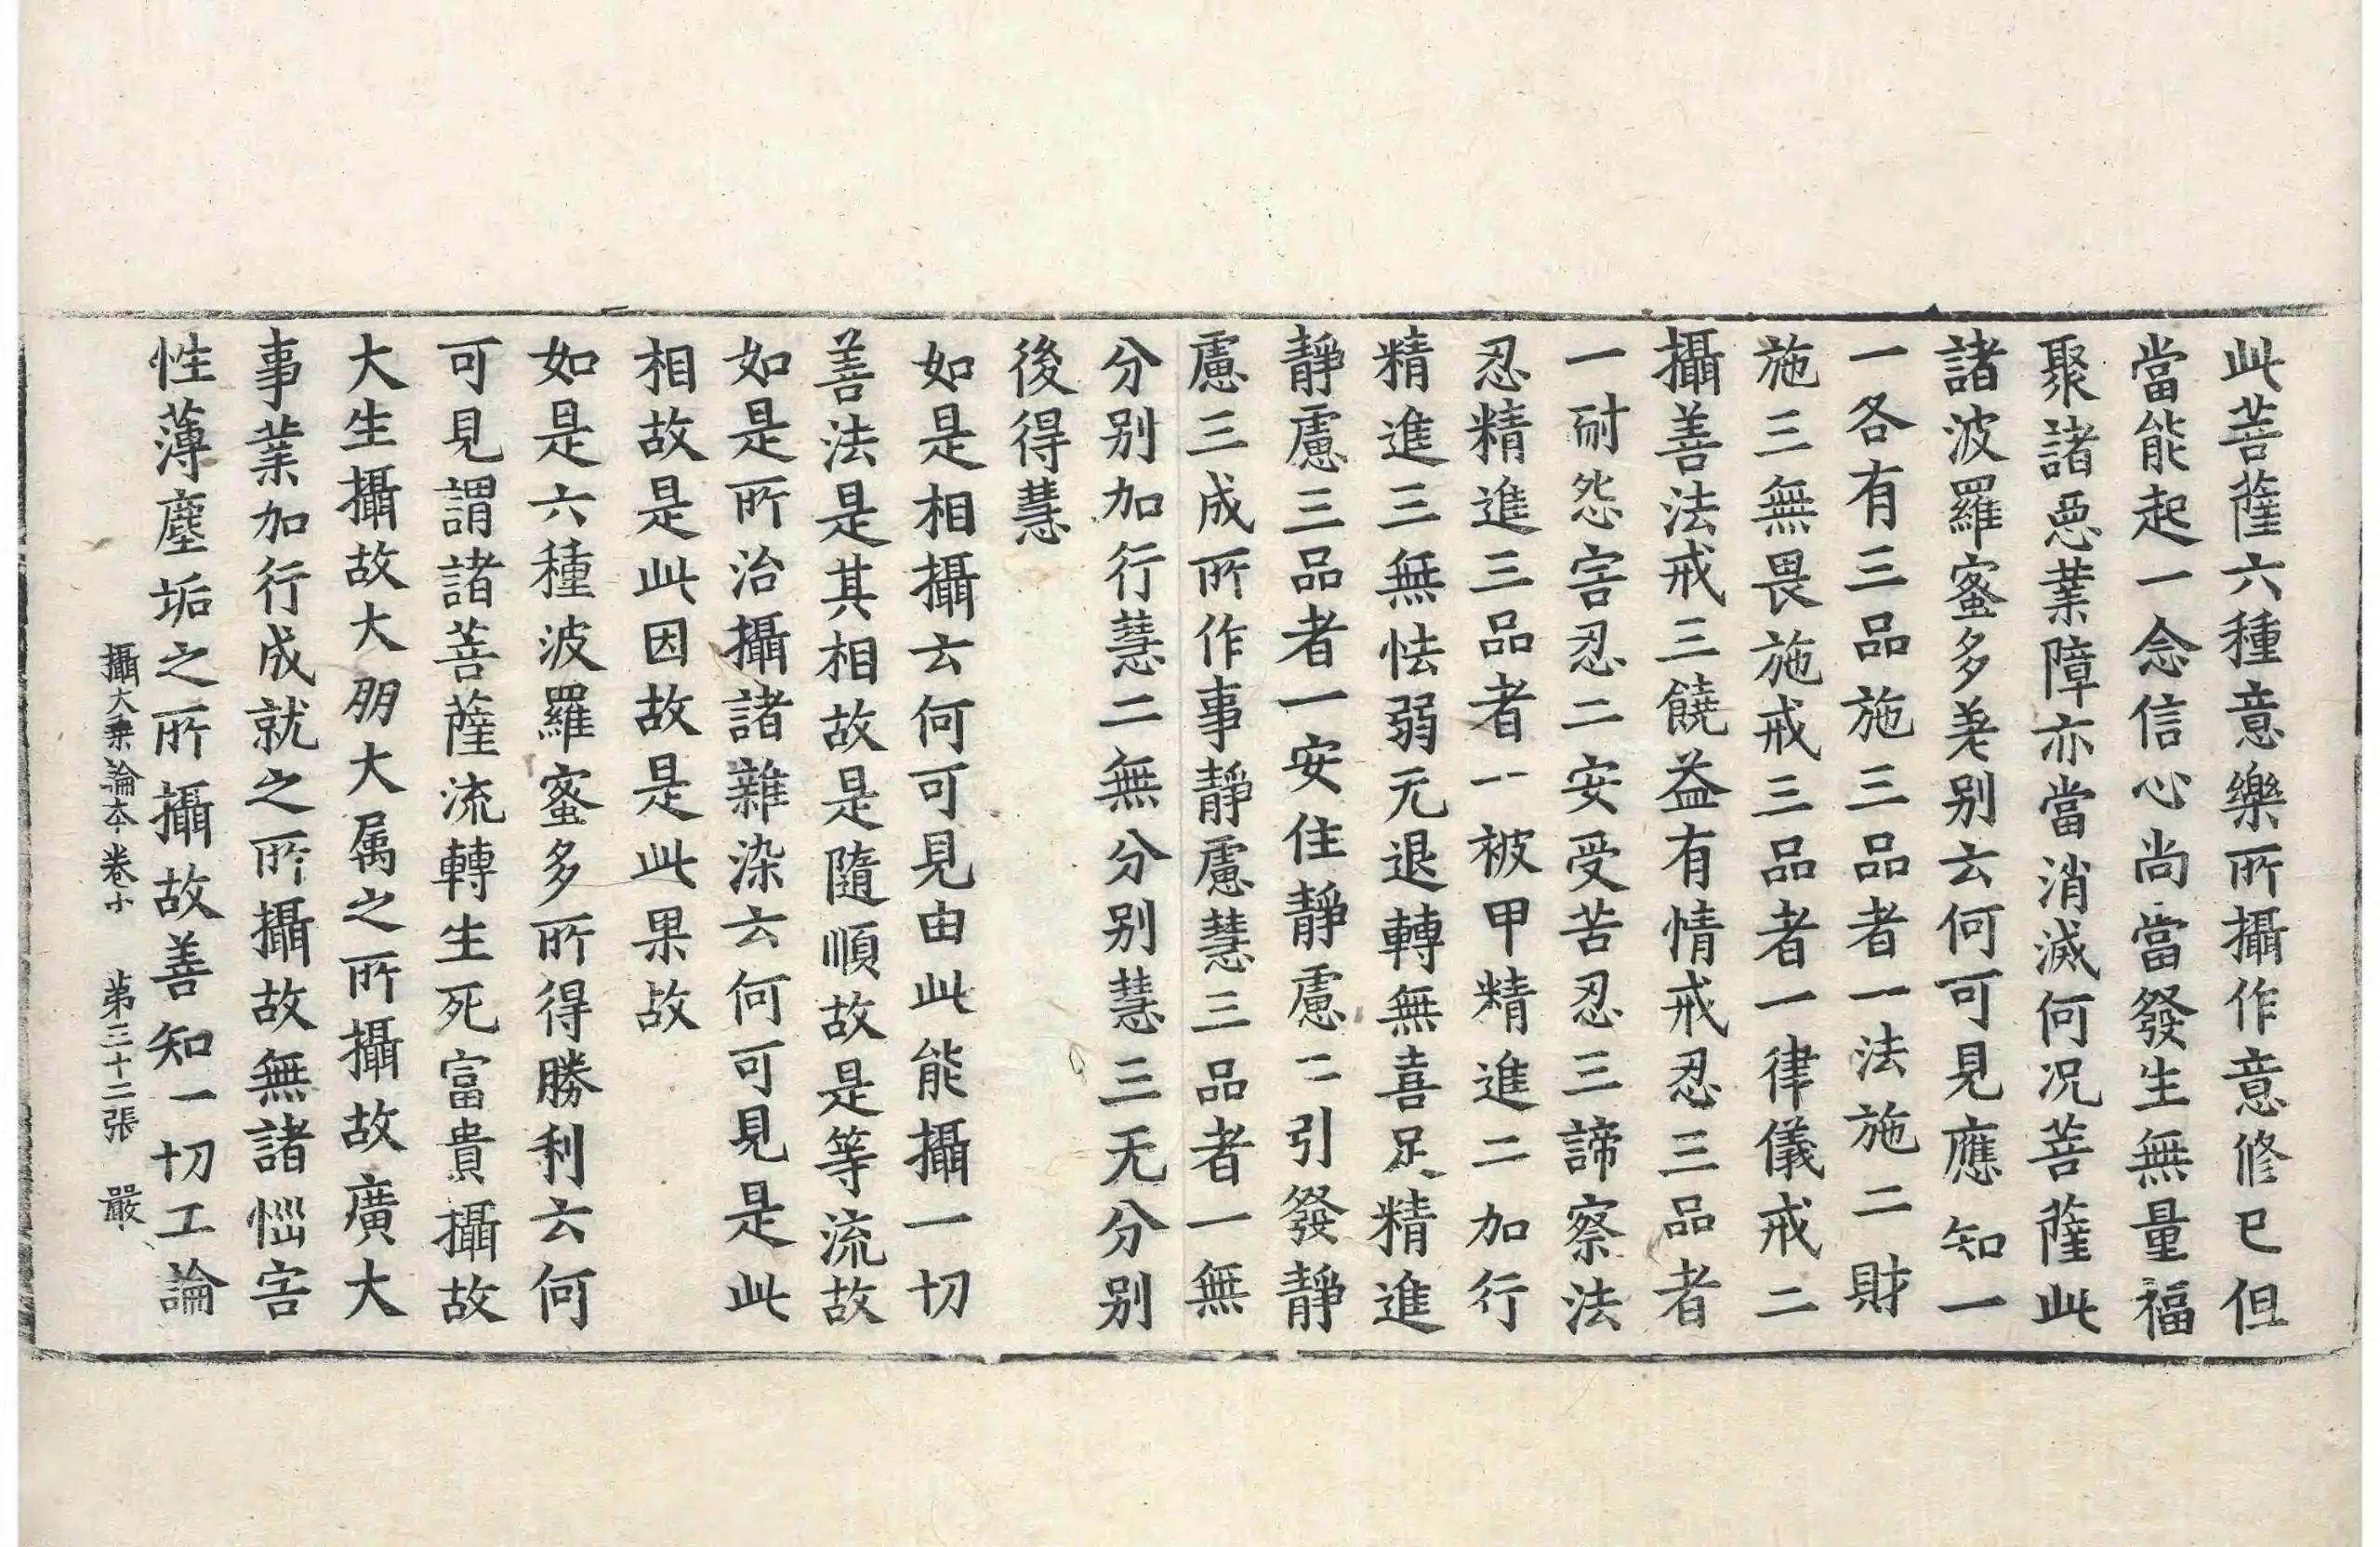 此菩薩六種意樂所攝作意修已但
當能起一念信心尚當發生無量福
聚諸惡業障亦當消滅何况菩薩此
諸波羅蜜多差别云何可見應知一
一各有三品施三品者一法施二財
施三無畏施戒三品者一律儀戒二
攝善法戒三饒益有情戒忍三品者
一耐怨害忍二安受苦忍三諦察法
忍精進三品者一被甲精進二加行
精進三無怯弱无退轉無喜足精進
靜慮三品者一安住靜慮二引發靜
慮三成所作事靜慮慧三品者一無
分别加行慧二無分别慧三无分别
後得慧
如是相攝云何可見由此能攝一切
善法是其相故是隨順故是等流故
如是所治攝諸雜染云何可見是此
相故是此因故是此果故
如是六種波羅蜜多所得勝利云何
可見謂諸菩薩流轉生死富貴攝故
大生攝故大朋大属之所攝故廣大
事業加行成就之所攝故無諸惱害
性薄塵垢之所攝故善知一切工論
攝大乗論本卷中 第三十二張 嚴